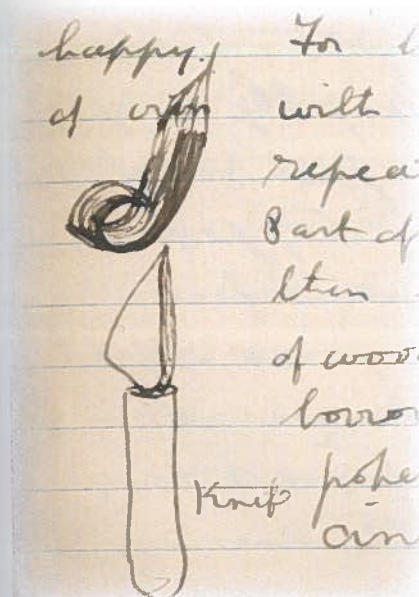 happy. For
of with
repea
Part of
then
of woo
borro
Knife pope
an